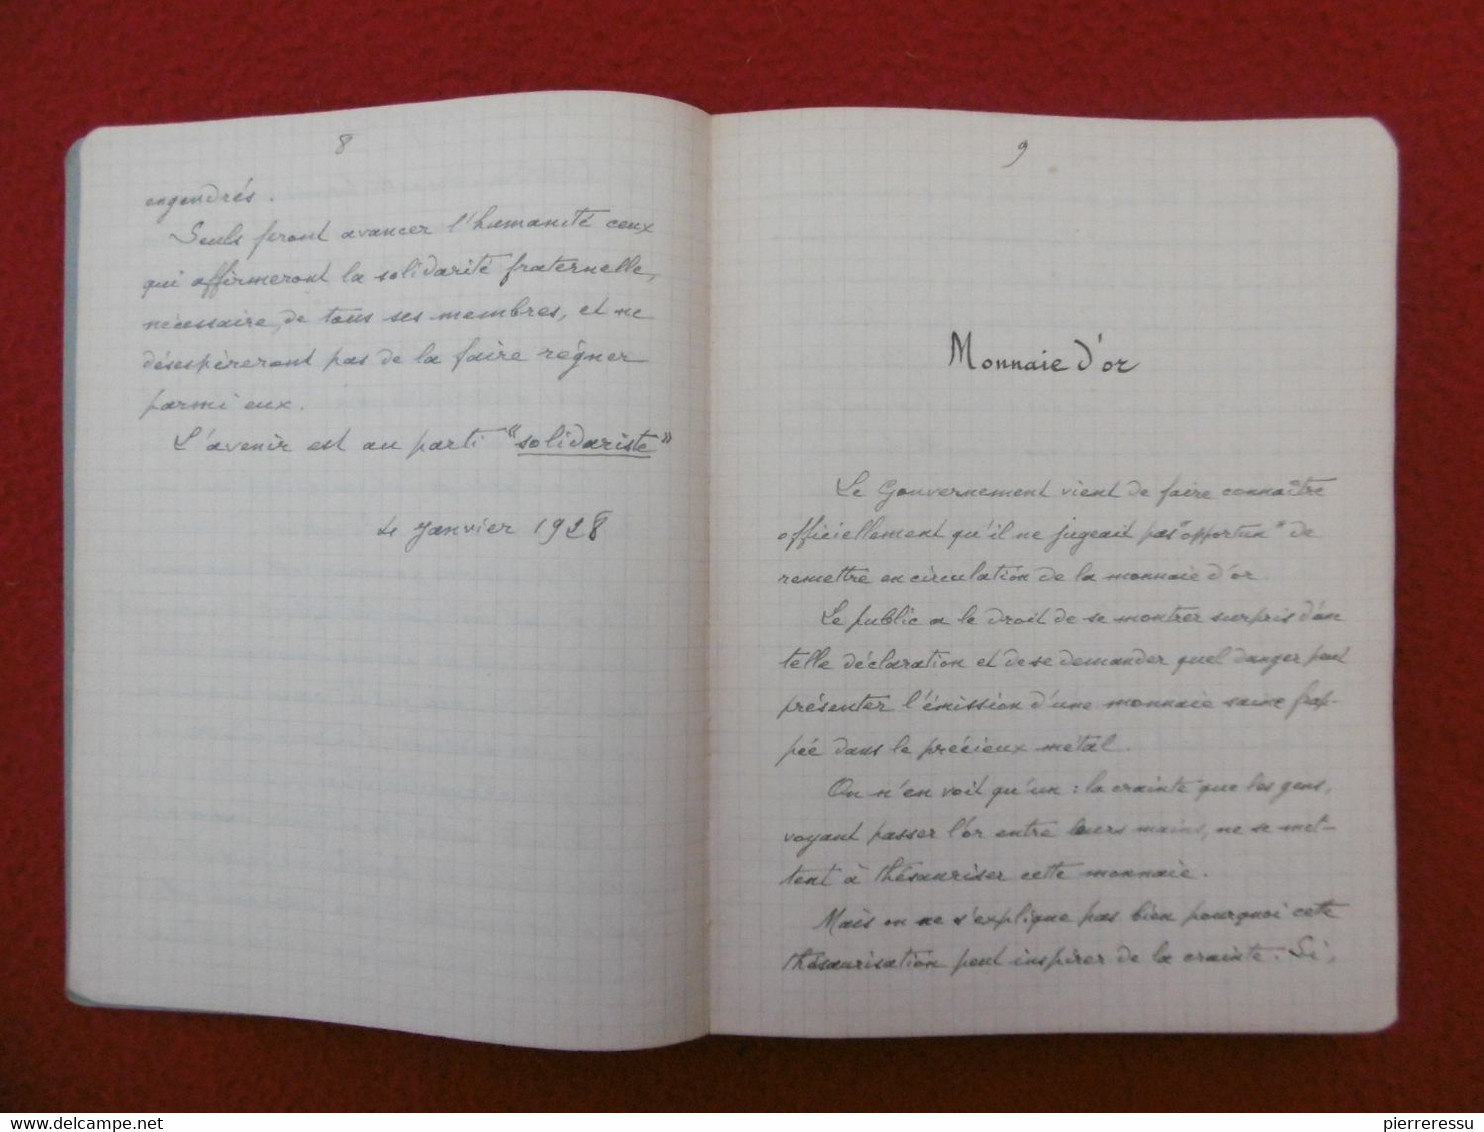 8
engendrés.
Seuls feront avancer l'humanité ceux
qui affirmeront la solidarité fraternelle,
nécessaire, de tous ses membres, et ne
désespèreront pas de la faire régner
parmi eux.
L'avenir est au parti "solidariste"
4 Janvier 1928
9
Monnaie d'or
Le Gouvernement vient de faire connaître
officiellement qu'il ne jugeait pas "opportun" de
remettre en circulation de la monnaie d'or.
Le public a le droit de se montrer surpris d'un
telle déclaration et de se demander quel danger peut
présenter l'émission d'une monnaie saine frap-
pée dans le précieux métal.
On n'en voit qu'un : la crainte que les gens,
voyant passer l'or entre leurs mains, ne se met-
tent à thésauriser cette monnaie.
Mais on ne s'explique pas bien pourquoi cette
thésaurisation peut inspirer de la crainte. Si,
delcampe.net
pierreressu